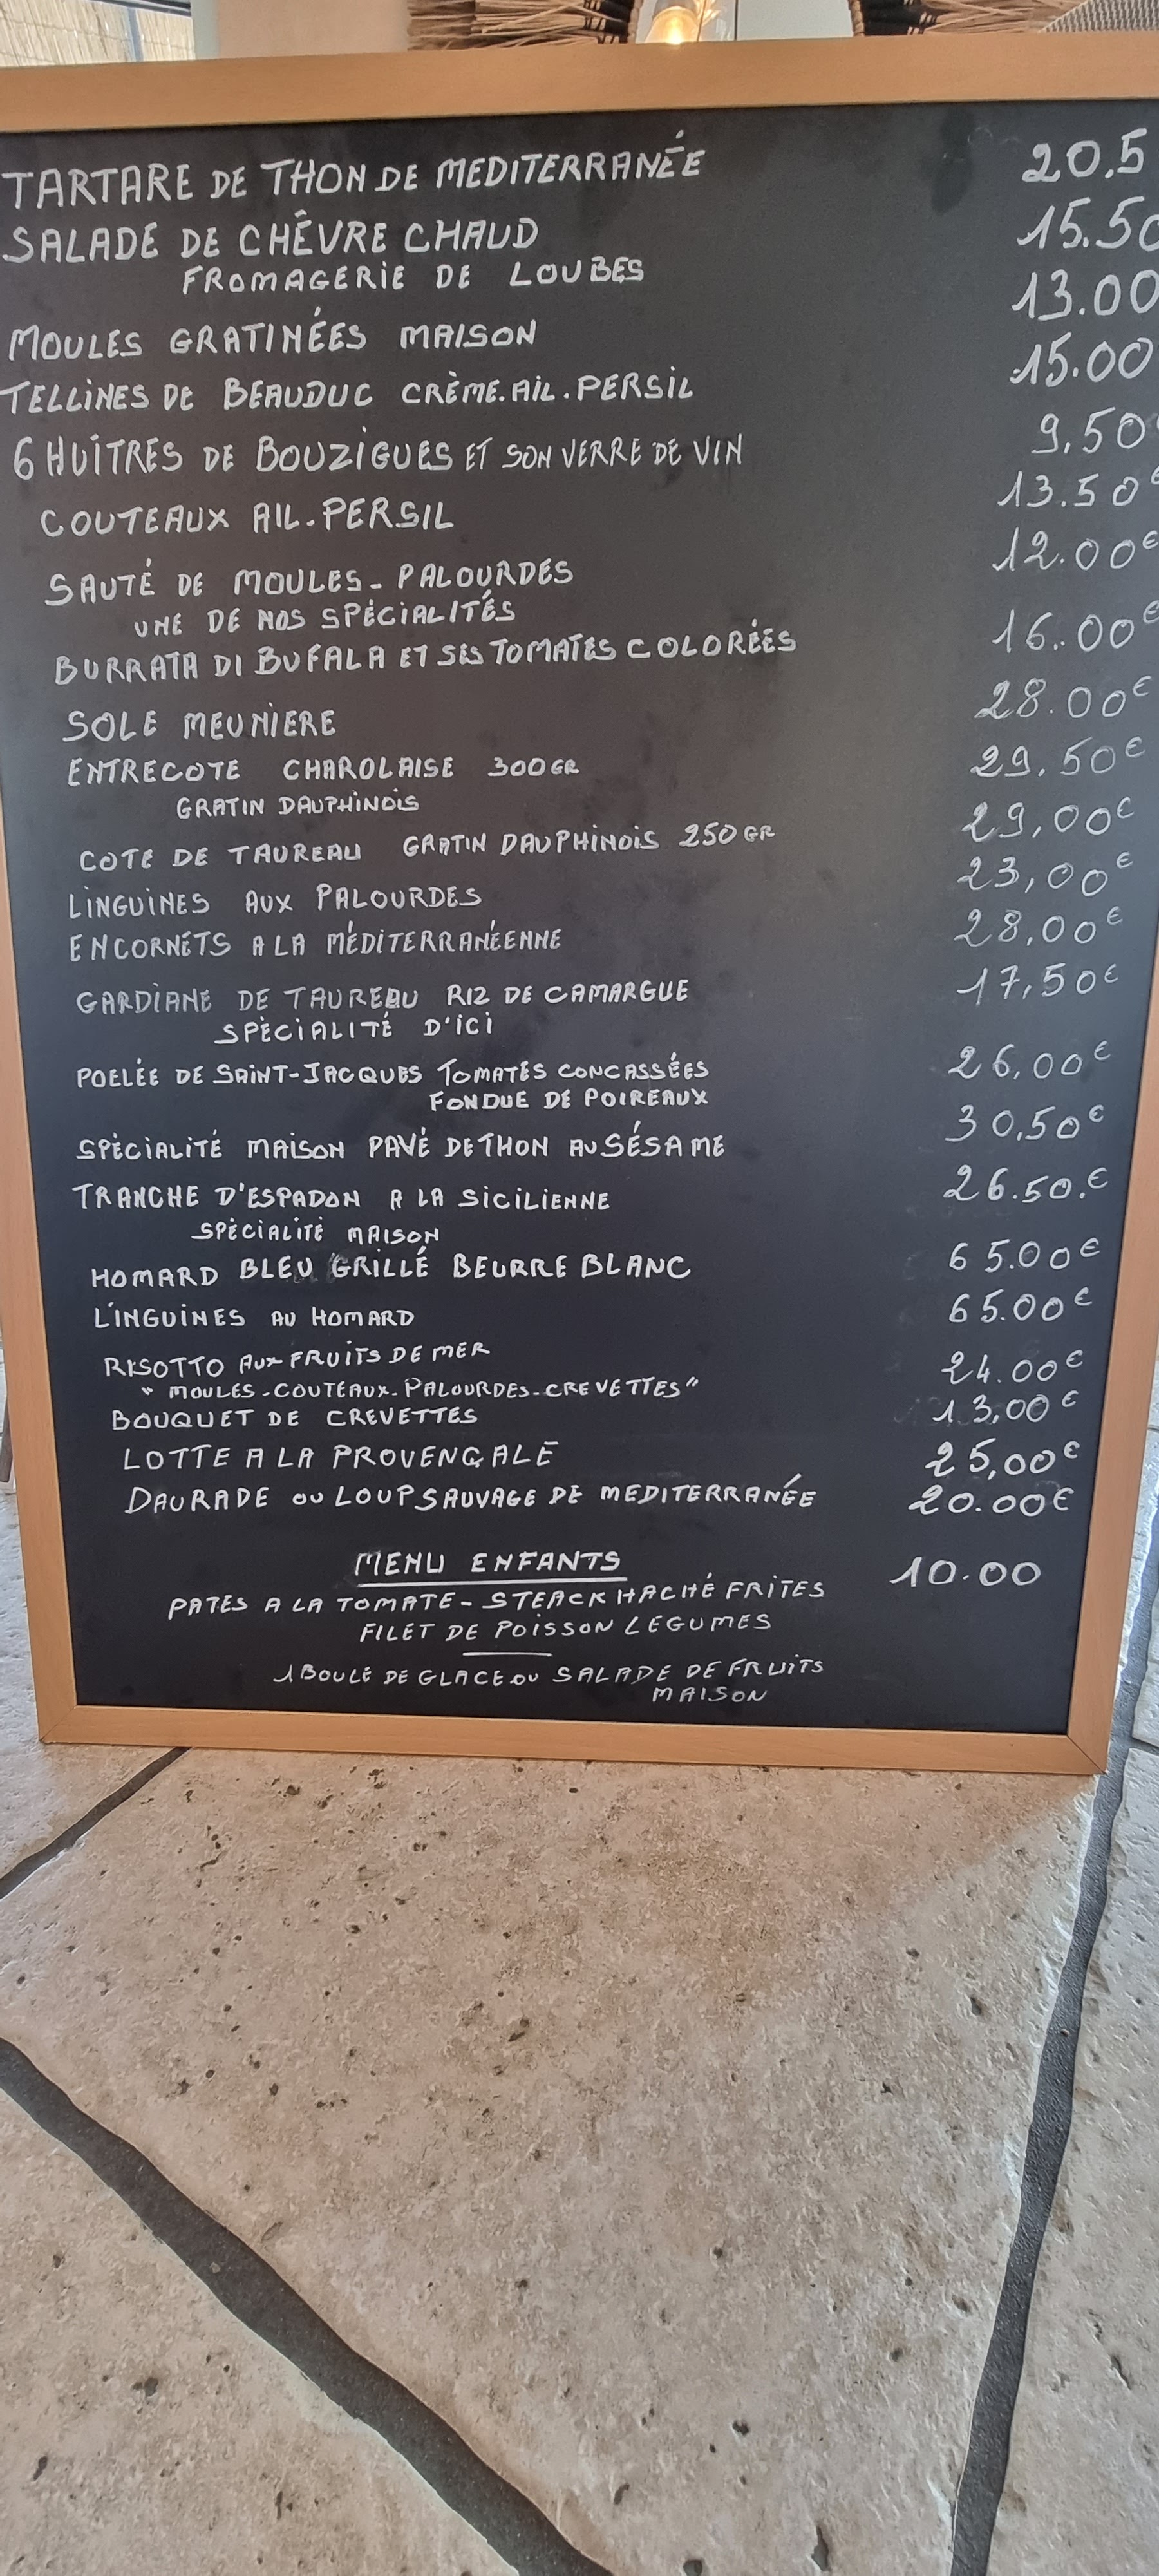 TARTARE DE THON DE MEDITERRANÉE 20.5
SALADE DE CHÈVRE CHAUD 15.50
FROMAGERIE DE LOUBES
MOULES GRATINÉES MAISON 13.00
TELLINES DE BEAUDUC CRÈME.AIL.PERSIL 15.00
6 HUÎTRES DE BOUZIGUES ET SON VERRE DE VIN 9,50
COUTEAUX AIL.PERSIL 13.50€
SAUTÉ DE MOULES-PALOURDES 12.00€
UNE DE NOS SPÉCIALITÉS
BURRATA DI BUFALA ET SES TOMATES COLORÉES 16.00€
SOLE MEUNIERE 28.00€
ENTRECOTE CHAROLAISE 300GR 29.50€
GRATIN DAUPHINOIS
COTE DE TAUREAU GRATIN DAUPHINOIS 250GR 29,00€
LINGUINES AUX PALOURDES 23,00€
ENCORNETS A LA MÉDITERRANÉENNE 28,00€
GARDIANE DE TAUREAU RIZ DE CAMARGUE 17,50€
SPÉCIALITÉ D'ICI
POELÉE DE SAINT-JACQUES TOMATES CONCASSÉES 26,00€
FONDUE DE POIREAUX
SPÉCIALITÉ MAISON PAVÉ DE THON AU SÉSAME 30,50€
TRANCHE D'ESPADON A LA SICILIENNE 26.50.€
SPÉCIALITÉ MAISON
HOMARD BLEU GRILLÉ BEURRE BLANC 65.00€
LINGUINES AU HOMARD 65.00€
RISOTTO AUX FRUITS DE MER 24.00€
"MOULES-COUTEAUX-PALOURDES-CREVETTES"
BOUQUET DE CREVETTES 13,00€
LOTTE A LA PROVENÇALE 25,00€
DAURADE OU LOUP SAUVAGE DE MEDITERRANÉE 20.00€
MENU ENFANTS 10.00
PATES A LA TOMATE - STEACK HACHÉ FRITES
FILET DE POISSON LEGUMES
1 BOULE DE GLACE OU SALADE DE FRUITS
MAISON